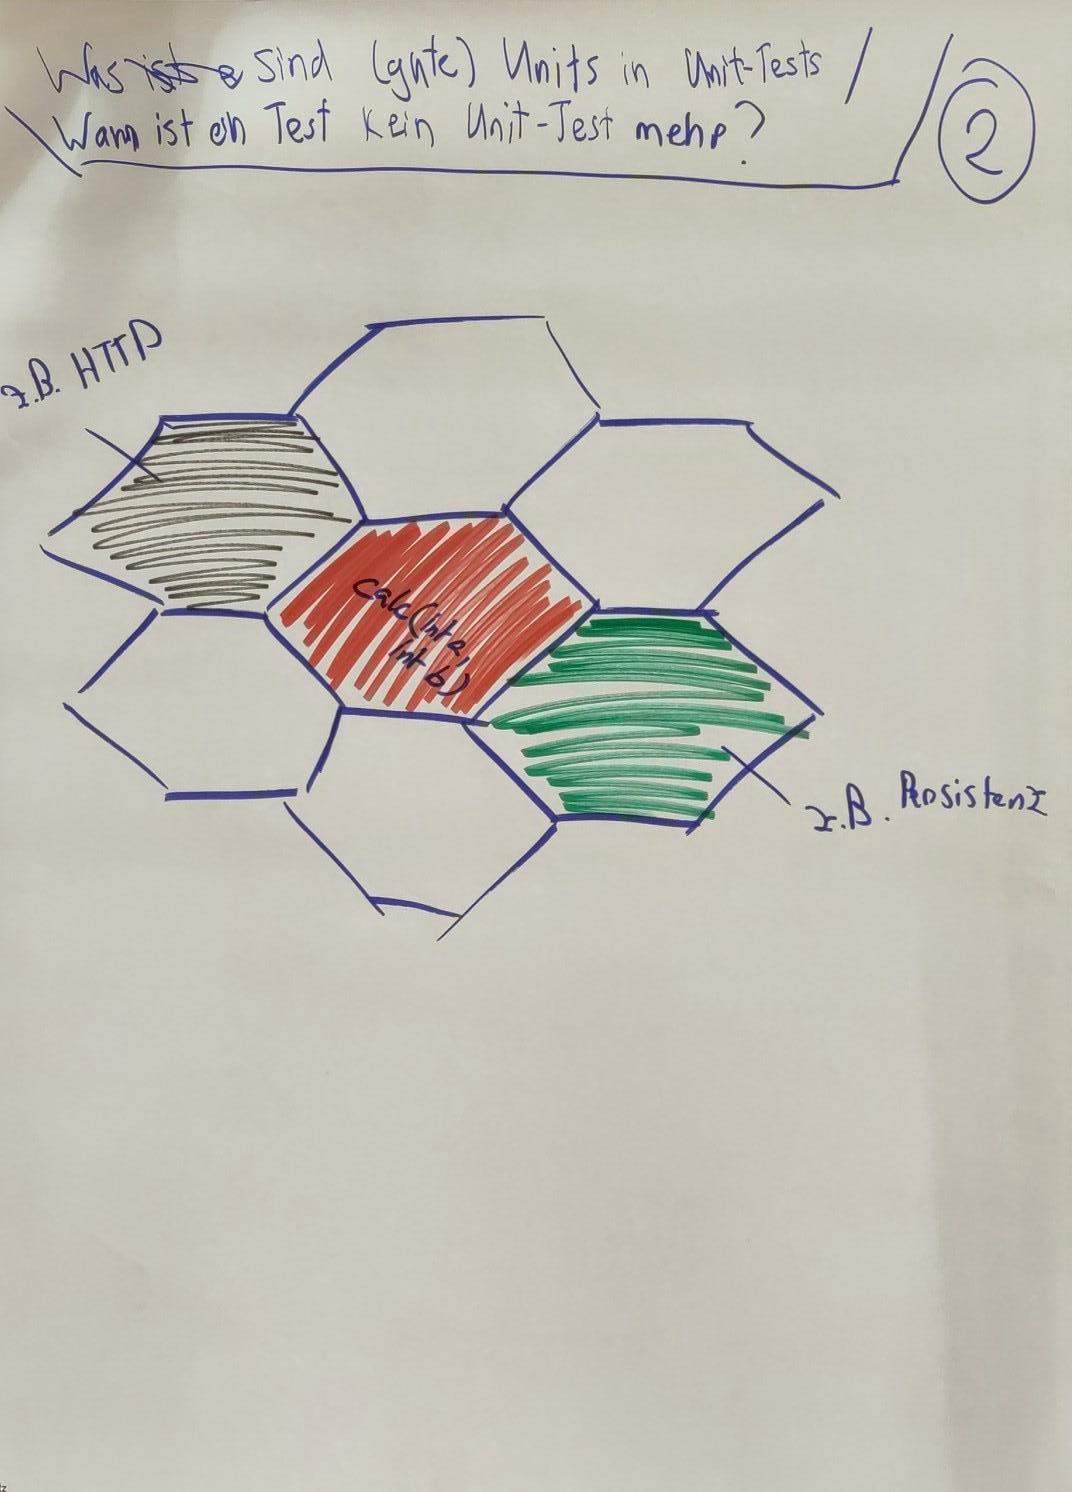 Was ist sind (gute) Units in Unit-Tests /
Wann ist ein Test kein Unit-Test mehr?
2
z.B. HTTP
calc(int a,
int b)
z.B. Persistenz
tz